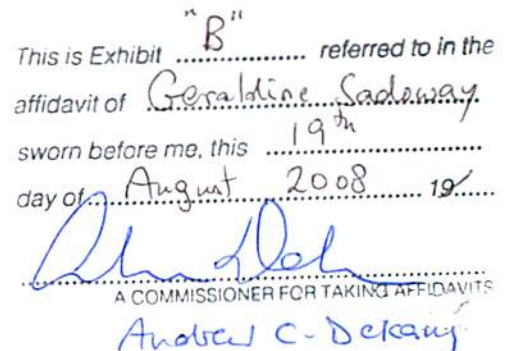 This is Exhibit "B" referred to in the
affidavit of Geraldine Sadoway
sworn before me, this 19th
day of August 2008 19
A COMMISSIONER FOR TAKING AFFIDAVITS
Andrew C.